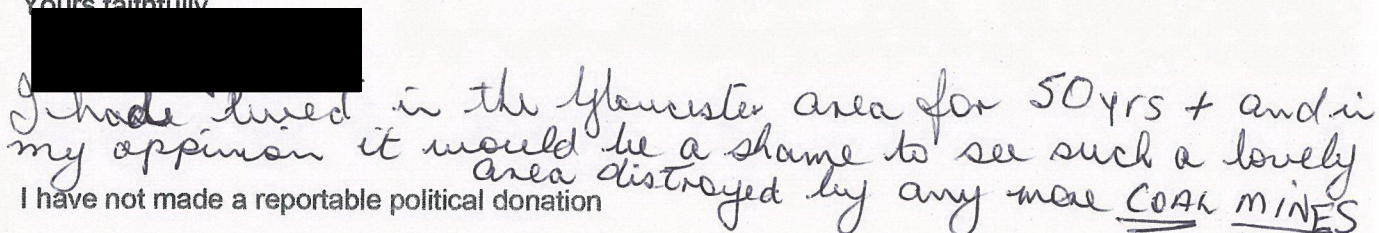 Yours faithfully
I have lived in the Gloucester area for 50yrs + and in
my oppinion it would be a shame to see such a lovely
area distroyed by any more COAL MINES
I have not made a reportable political donation